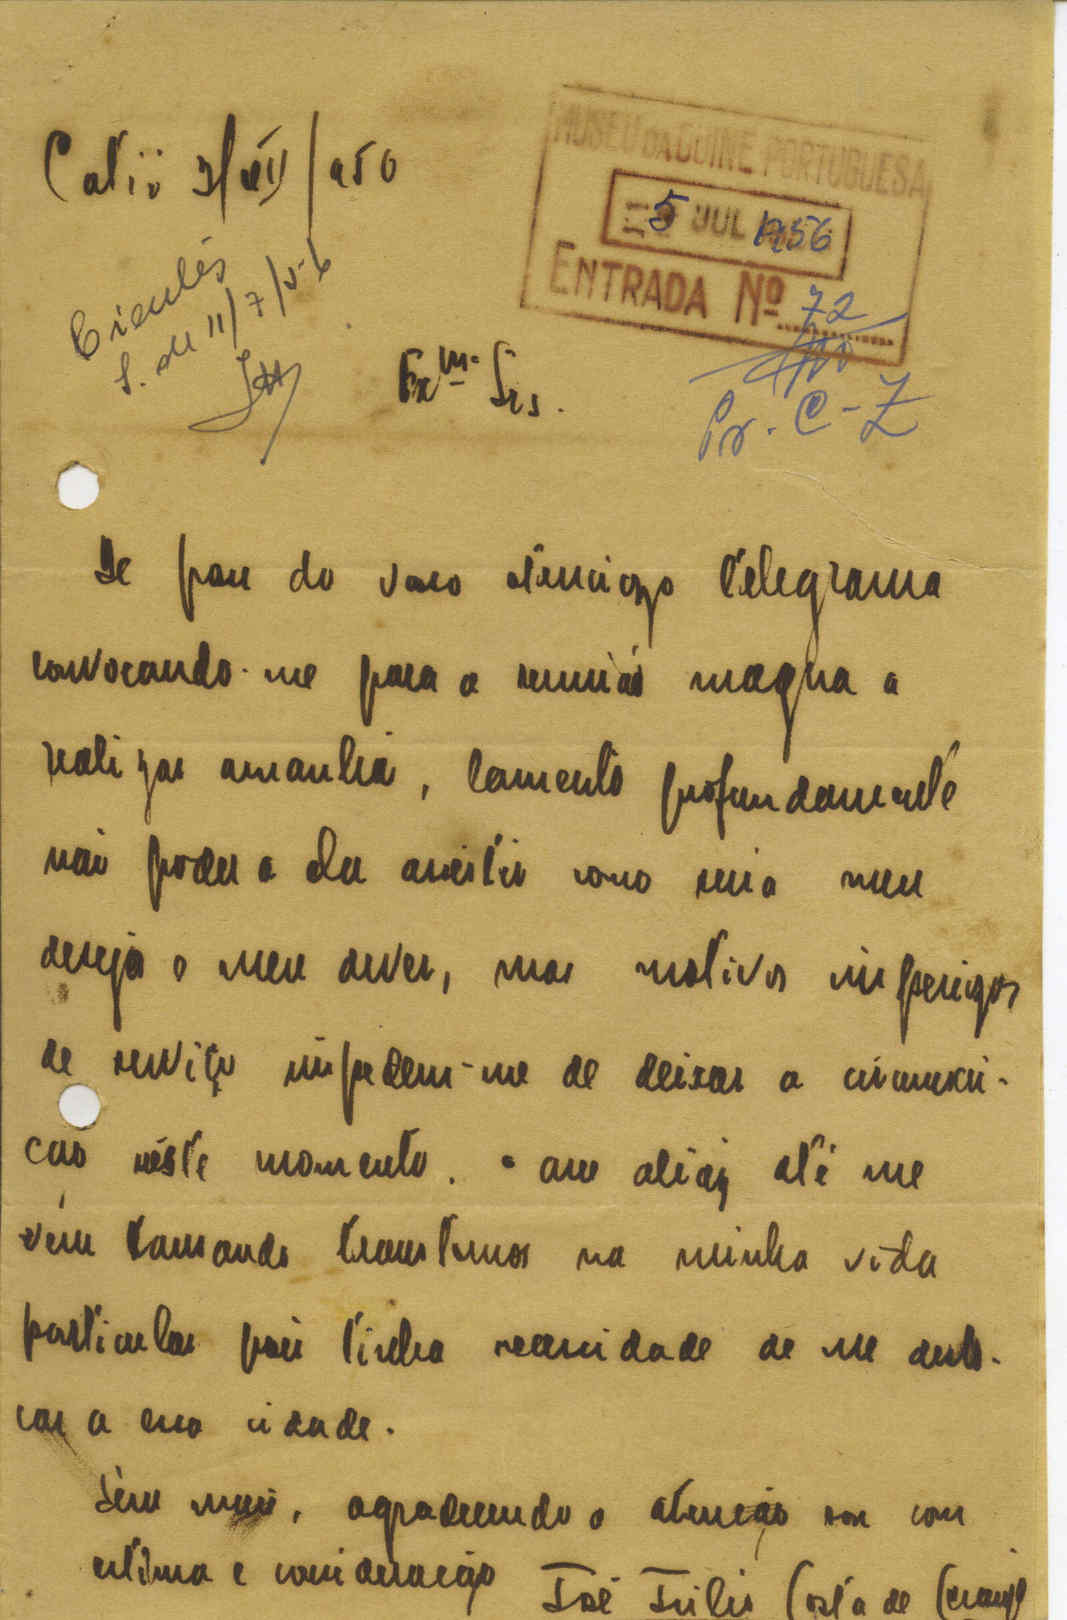 Catió 3/VII/956
MUSEU DA GUINÉ PORTUGUESA
5 JUL 1956
ENTRADA Nº 72
Pr. C-Z
S. de 11/7/56
Exmºs Srs.
De posse do vosso atencioso telegrama
convocando-me para a reunião magna a
realizar amanhã, lamento profundamente
não poder a ela assistir como seria meu
desejo e meu dever, mas motivos imperiosos
de serviço impedem-me de deixar a circunscri-
ção nêste momento. que aliás até me
vem causando transtornos na minha vida
particular pois tinha necessidade de me deslo-
car a essa cidade.
Sem mais, agradecendo a atenção sou com
estima e consideração José Júlio Costa de